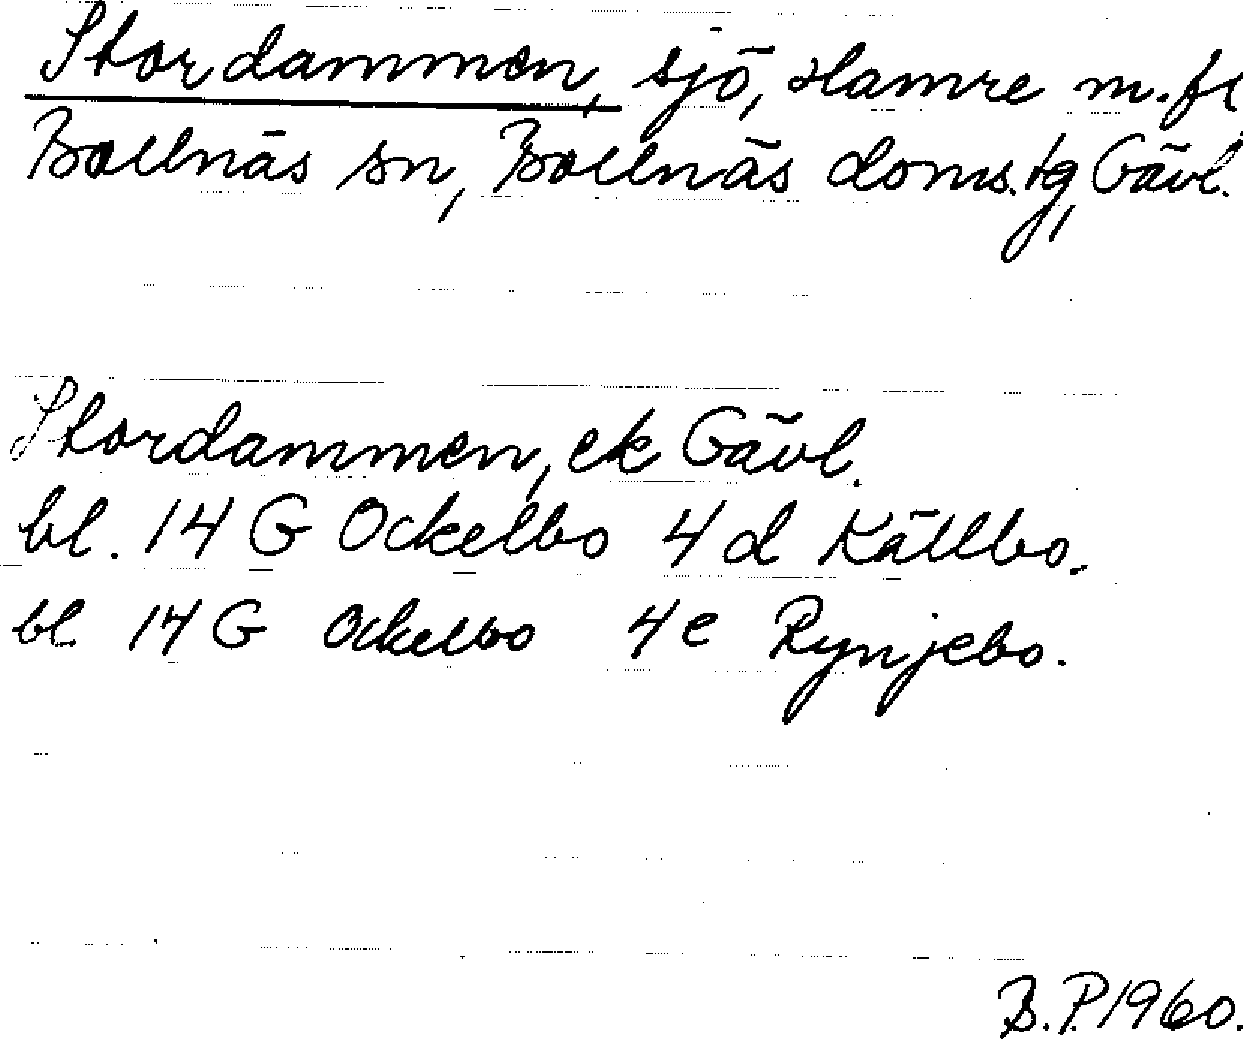 Stordammen, sjö, Hamre m.fl
Bollnäs sn, Bollnäs doms.tg, Gävl.
Stordammen, ek Gävl.
bl. 14 G Ockelbo 4 d Källbo.
bl 14 G Ockelbo 4 e Rynjebo.
B.P. 1960.